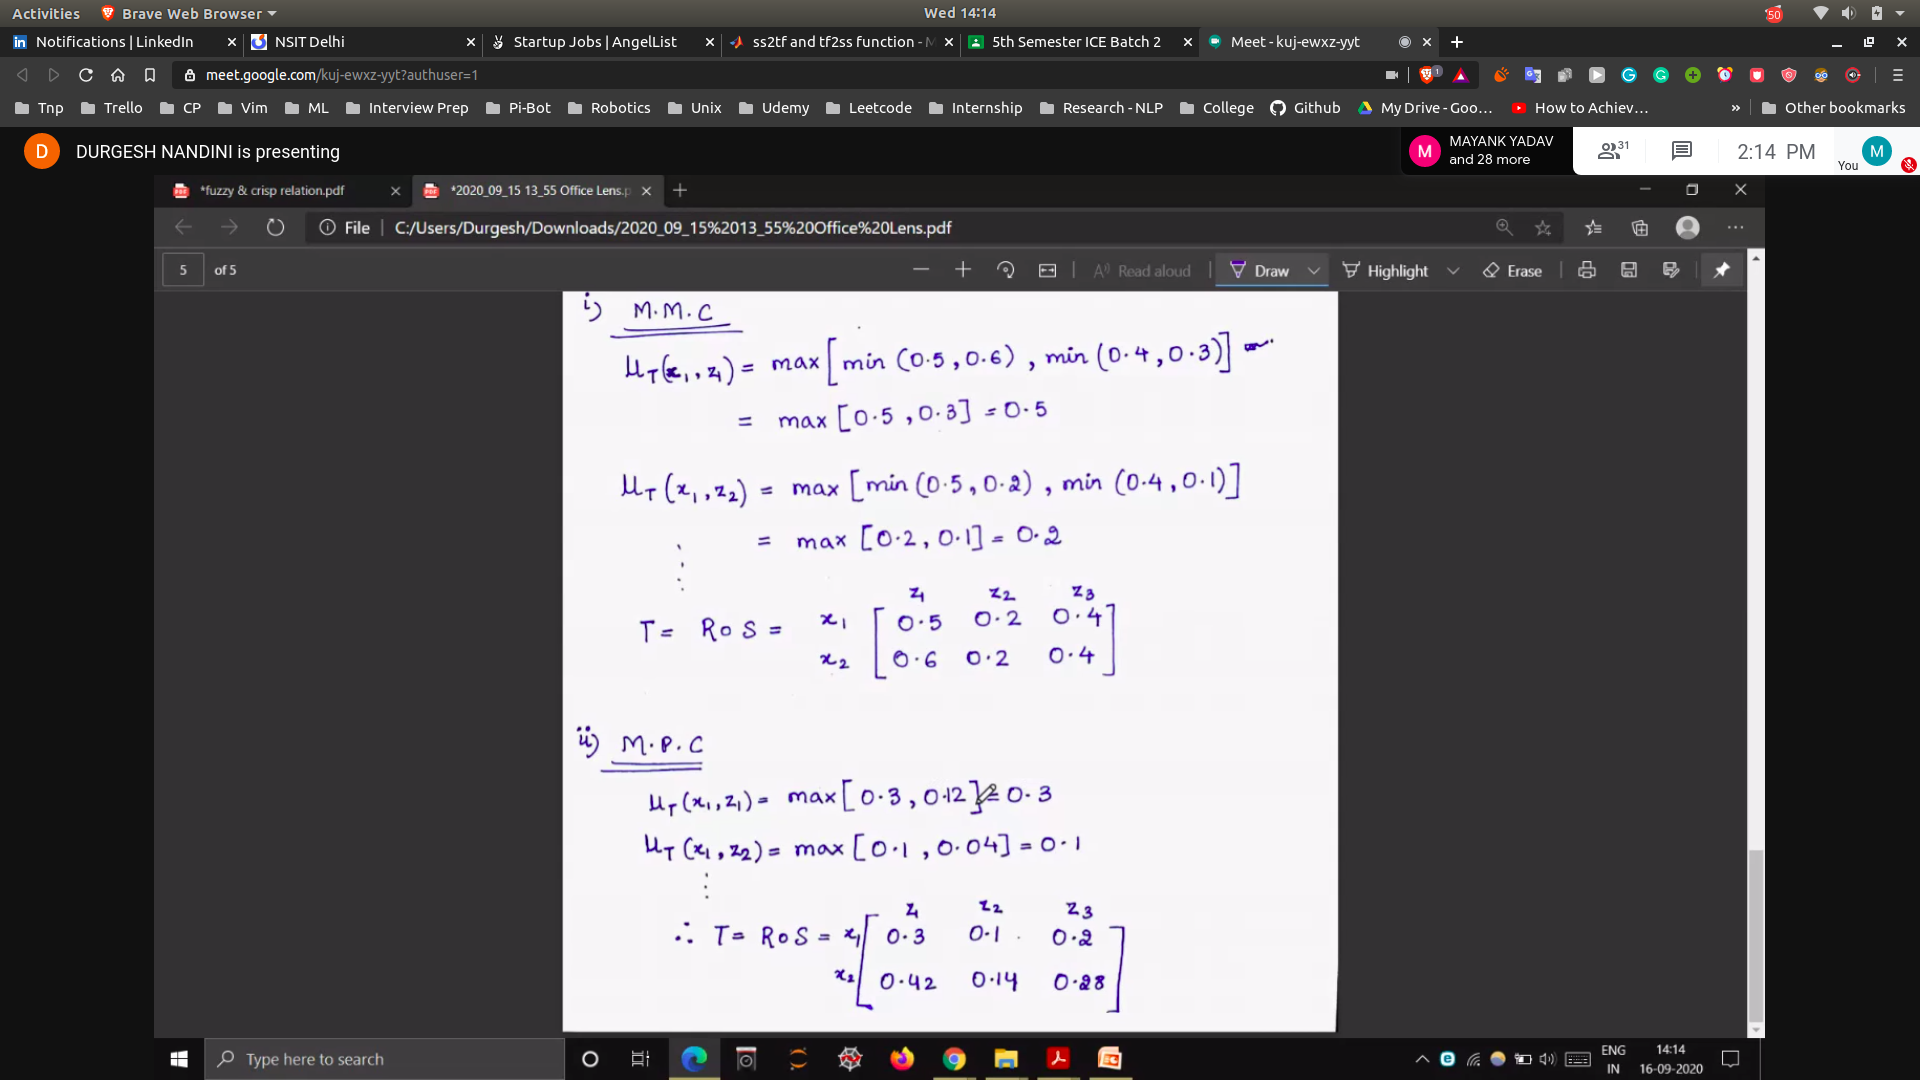 Activities Brave Web Browser Wed 14:14 50
Notifications | LinkedIn NSIT Delhi Startup Jobs | AngelList ss2tf and tf2ss function - M 5th Semester ICE Batch 2 Meet - kuj-ewxz-yyt
meet.google.com/kuj-ewxz-yyt?authuser=1
Tnp Trello CP Vim ML Interview Prep Pi-Bot Robotics Unix Udemy Leetcode Internship Research - NLP College Github My Drive - Goo... How to Achiev... » Other bookmarks
D DURGESH NANDINI is presenting M MAYANK YADAV and 28 more 31 2:14 PM You M
*fuzzy & crisp relation.pdf *2020_09_15 13_55 Office Lens.p
File C:/Users/Durgesh/Downloads/2020_09_15%2013_55%20Office%20Lens.pdf
5 of 5 Read aloud Draw Highlight Erase
i) M.M.C
μT(x1,z1) = max[min (0.5,0.6) , min (0.4,0.3)]
= max [0.5 ,0.3] = 0.5
μT (x1,z2) = max [min (0.5,0.2) , min (0.4,0.1)]
= max [0.2, 0.1] = 0.2
z1 z2 z3
T = RoS = x1 [0.5 0.2 0.4
x2 0.6 0.2 0.4]
ii) M.P.C
μT(x1,z1) = max[0.3 , 0.12] = 0.3
μT (x1,z2) = max [0.1 , 0.04] = 0.1
z1 z2 z3
∴ T = RoS = x1 [0.3 0.1 0.2
x2 0.42 0.14 0.28]
Type here to search ENG IN 14:14 16-09-2020